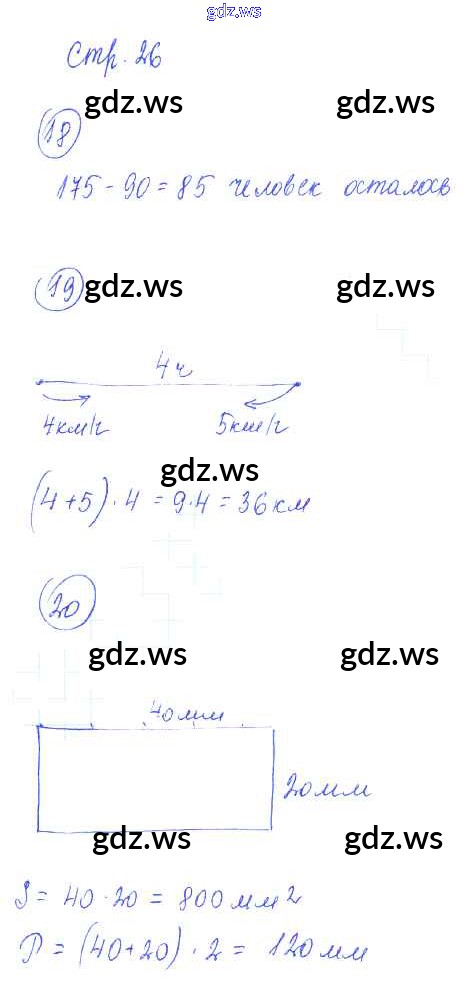 gdz.ws
Стр. 26
gdz.ws gdz.ws
18
175 - 90 = 85 человек осталось
19 gdz.ws gdz.ws
4ч
4км/ч 5км/ч
gdz.ws gdz.ws
(4+5) · 4 = 9·4 = 36 км
20
gdz.ws gdz.ws
40мм
20мм
gdz.ws gdz.ws
S = 40 · 20 = 800 мм2
P = (40+20) · 2 = 120 мм